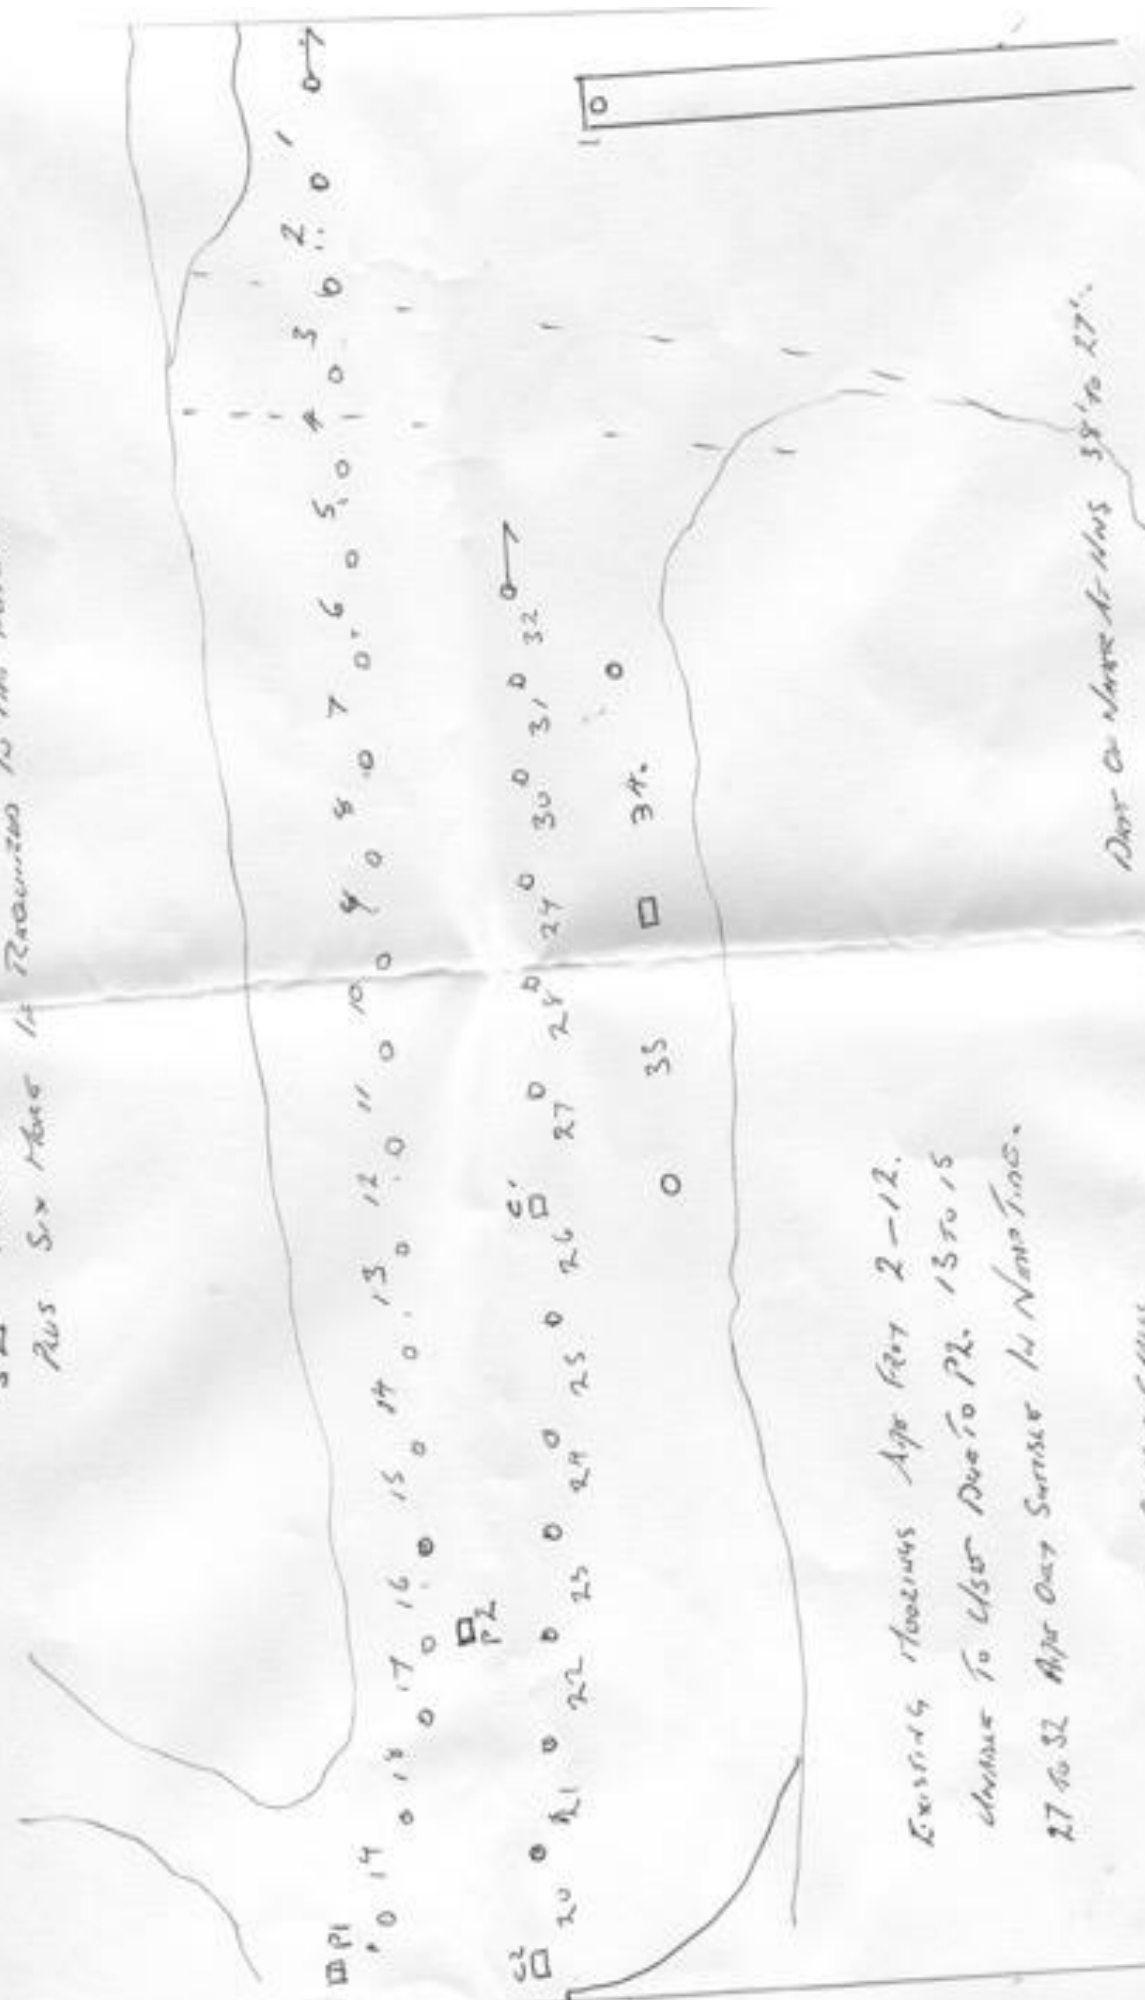 Plus Six More If Required In
1
2
3
4
5
6
7
8
9
10
11
12
13
14
15
16
17
18
19
P1
P2
C2
20
21
22
23
24
25
26
C1
27
28
29
30
31
32
33
34.
1
Existing Moorings Are From 2-12.
Unable To Use Due To P2. 13 to 15
27 to 32 Are Only Suitable In Neap Tide.
Of Water At HWS 38' to 27'.